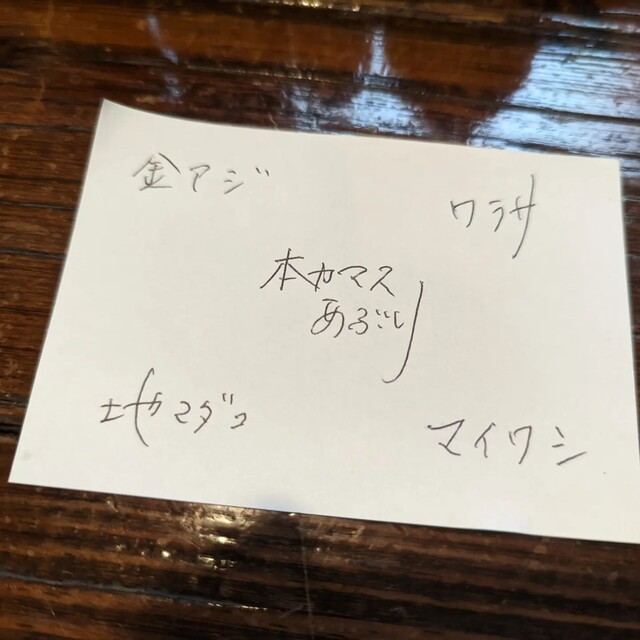 金アジ
ワラサ
本カマス
あぶり
地マダコ
マイワシ